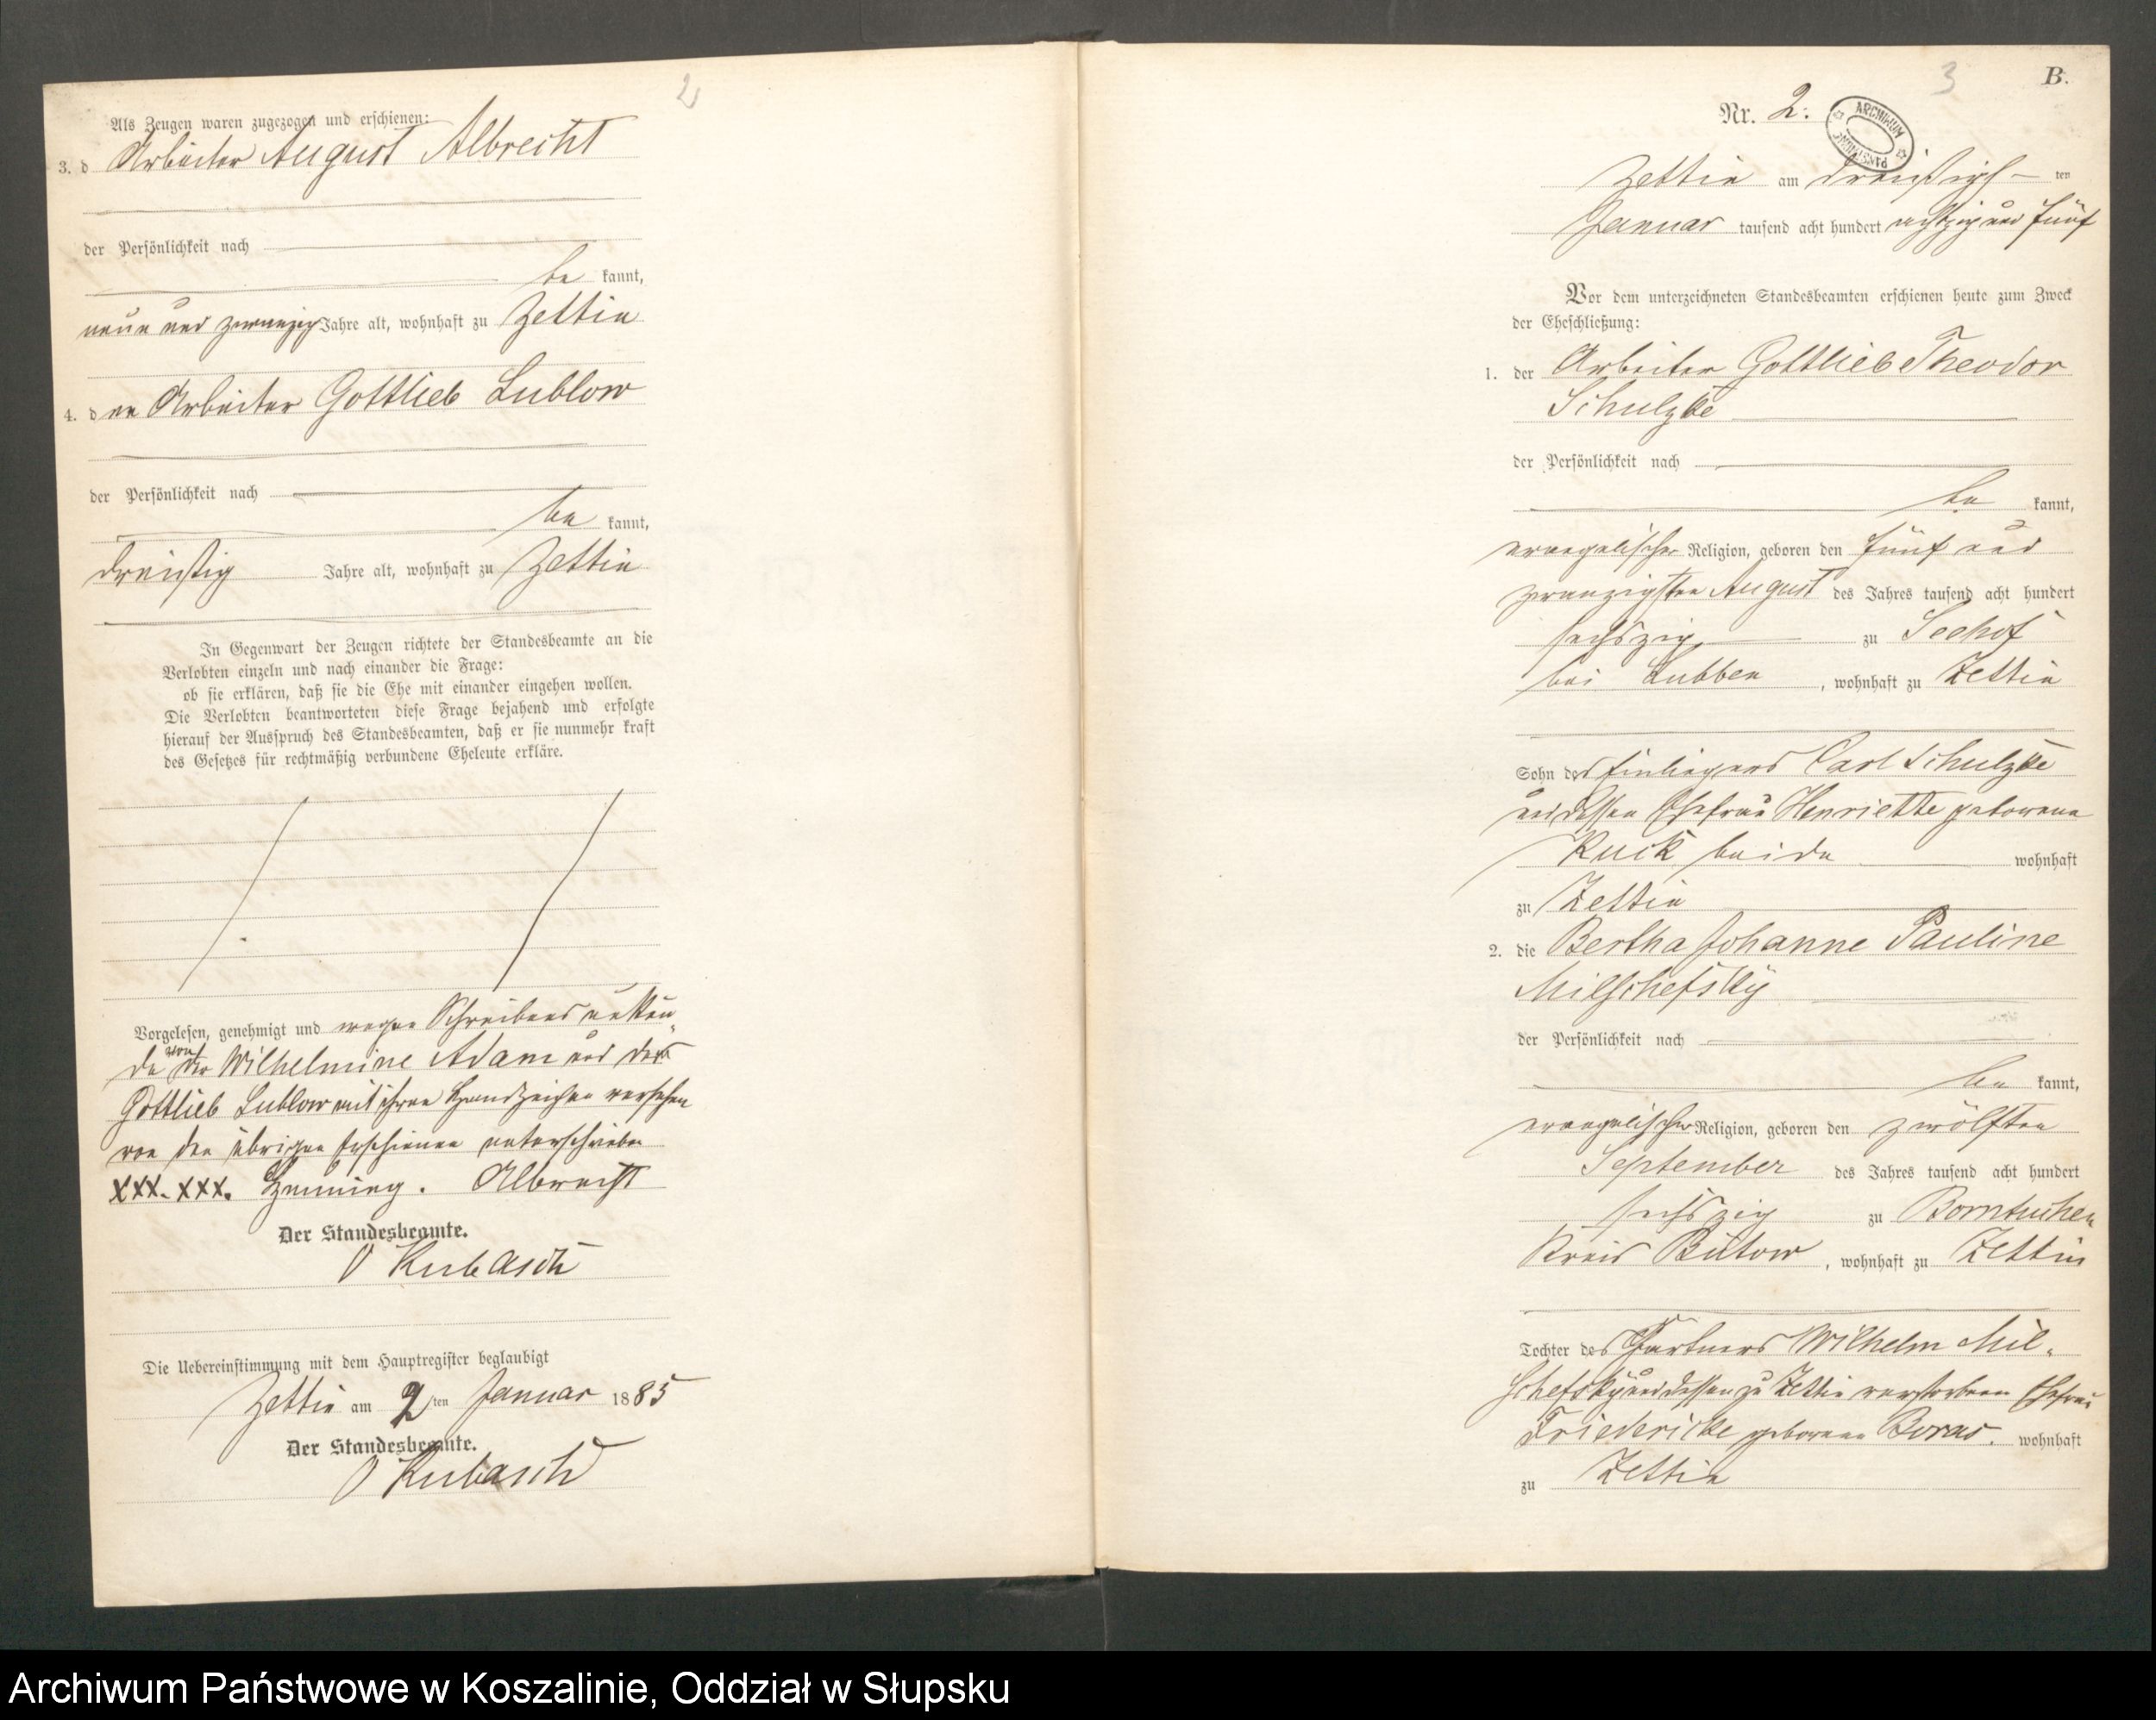 2
Als Zeugen waren zugezogen und erschienen:
3. d Arbeiter August Albrecht
der Persönlichkeit nach
be kannt,
neun und zwanzig Jahre alt, wohnhaft zu Zettin
4. d er Arbeiter Gottlieb Lublow
der Persönlichkeit nach
be kannt,
dreißig Jahre alt, wohnhaft zu Zettin
In Gegenwart der Zeugen richtete der Standesbeamte an die
Verlobten einzeln und nach einander die Frage:
ob sie erklären, daß sie die Ehe mit einander eingehen wollen.
Die Verlobten beantworteten diese Frage bejahend und erfolgte
hierauf der Ausspruch des Standesbeamten, daß er sie nunmehr kraft
des Gesetzes für rechtmäßig verbundene Eheleute erkläre.
Vorgelesen, genehmigt und wegen Schreibens unkun-
de von der Wilhelmine Adam und des
Gottlieb Lublow mit ihren Handzeichen versehen
von den übrigen Erschienen unterschrieben
XXX. XXX. Henning. Albrecht
Der Standesbeamte.
Kubasch
Die Uebereinstimmung mit dem Hauptregister beglaubigt
Zettin am 2 ten Januar 1885
Der Standesbeamte.
Kubasch
3
B.
Nr. 2.
ARCHIWUM
PAŃSTWOWE
Zettin am dreißigs- ten
Januar tausend acht hundert achtzig und fünf
Vor dem unterzeichneten Standesbeamten erschienen heute zum Zweck
der Eheschließung:
1. der Arbeiter Gottlieb Theodor
Schulzke
der Persönlichkeit nach
be kannt,
evangelischer Religion, geboren den fünf und
zwanzigsten August des Jahres tausend acht hundert
sechszig zu Seehof
bei Lubben, wohnhaft zu Zettin
Sohn des Einliegers Carl Schulzke
und dessen Ehefrau Henriette geborene
Kuck beide wohnhaft
zu Zettin
2. die Bertha Johanne Pauline
Milschefsky
der Persönlichkeit nach
be kannt,
evangelischer Religion, geboren den zwölften
September des Jahres tausend acht hundert
sechszig zu Borntuchen
Kreis Bütow, wohnhaft zu Zettin
Tochter des Gärtners Wilhelm Mil-
schefsky und dessen zu Zettin verstorbenen Ehefrau
Friedericke geborene Boras. wohnhaft
zu Zettin
Archiwum Państwowe w Koszalinie, Oddział w Słupsku